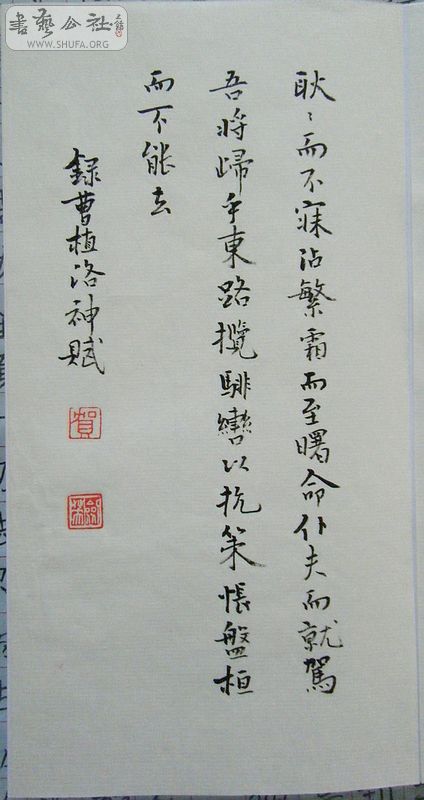 書藝公社
WWW.SHUFA.ORG
耿〻而不寐沾繁霜而至曙命仆夫而就駕
吾將歸乎東路攬騑轡以抗策悵盤桓
而不能去
錄曹植洛神賦
賀